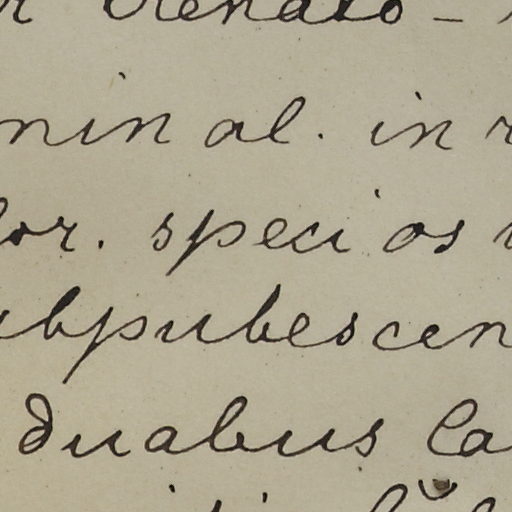 crenato –
minal. in
lor. specios
ubpubescen
duabus la